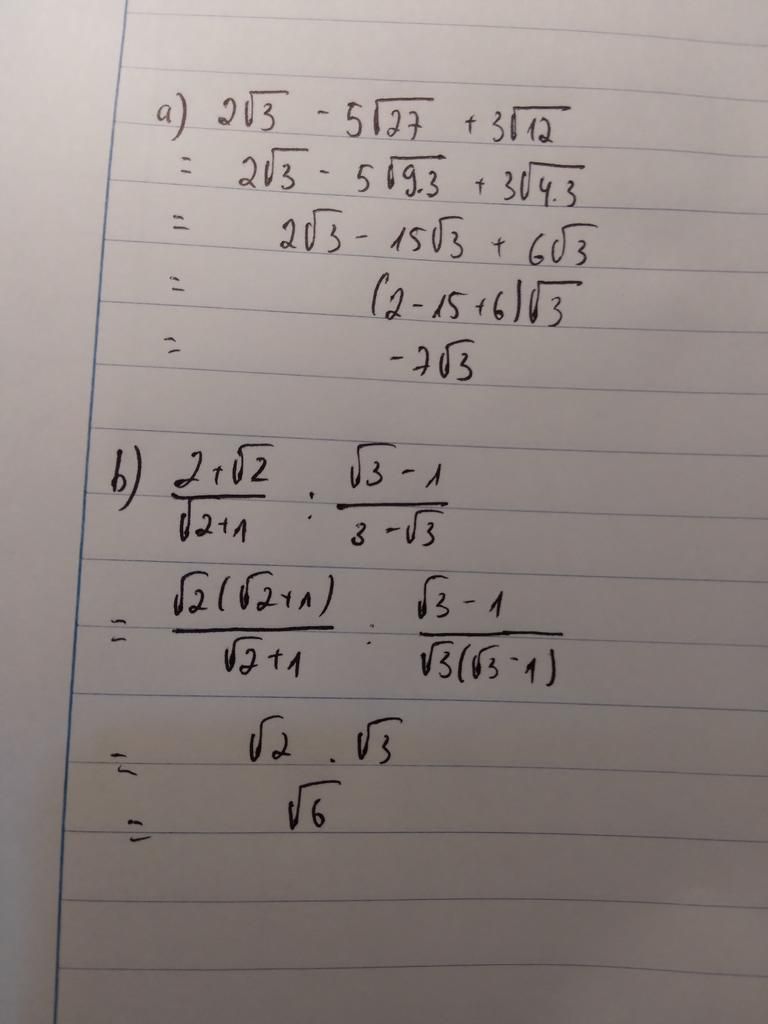 a) 2√3 - 5√27 + 3√12
= 2√3 - 5√9.3 + 3√4.3
= 2√3 - 15√3 + 6√3
= (2 - 15 + 6)√3
= -7√3
b) (2+√2)/(√2+1) : (√3 - 1)/(3 - √3)
= (√2(√2+1))/(√2+1) : (√3 - 1)/(√3(√3 - 1))
= √2 . √3
= √6